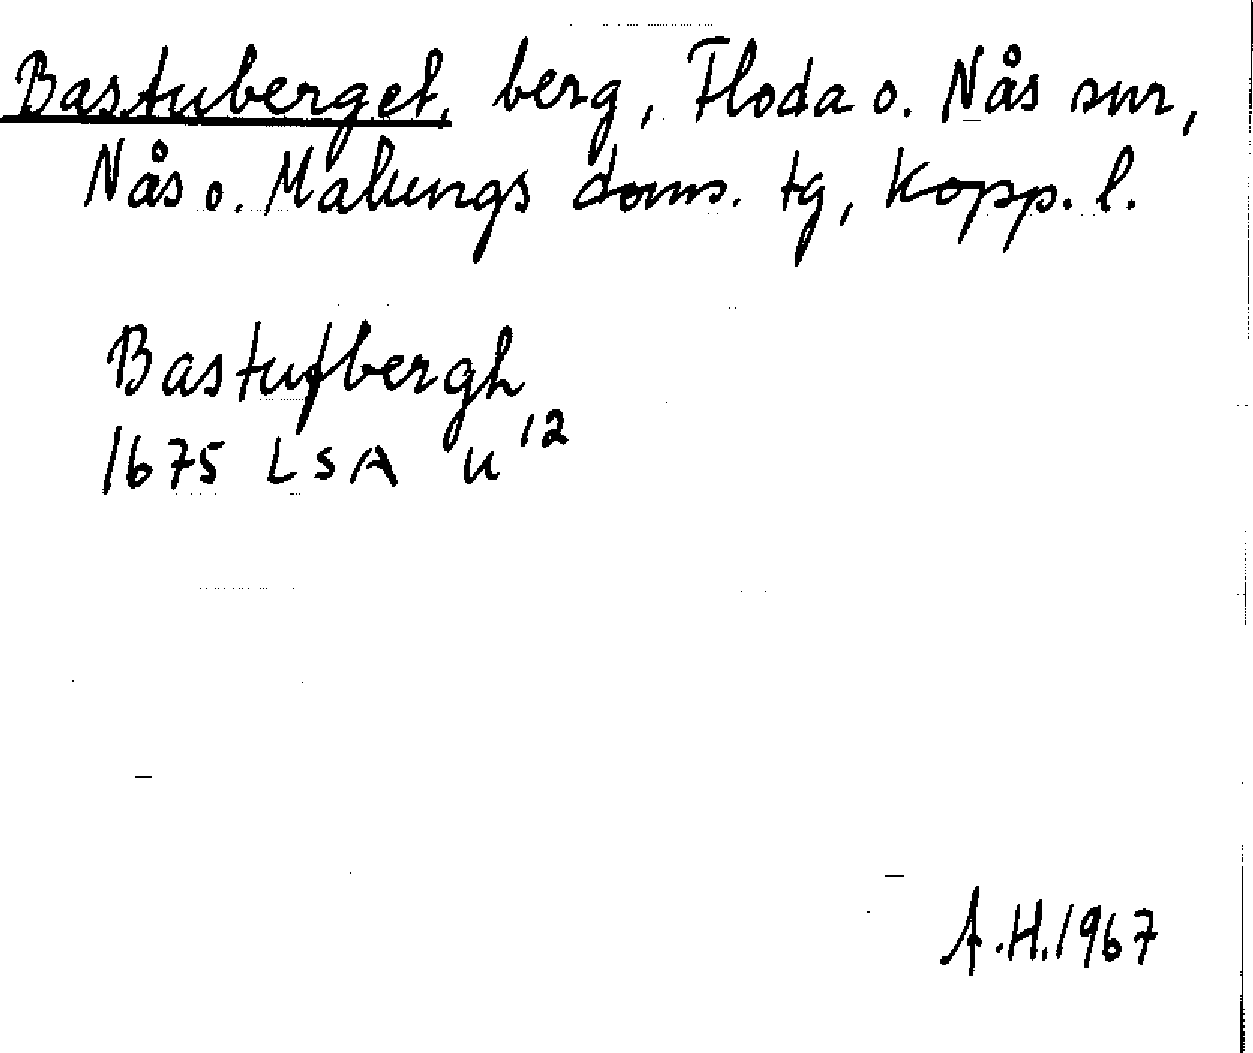 Bastuberget, berg, Floda o. Nås snr,
Nås o. Malungs doms. tg, Kopp. l.
Bastufbergh
1675 LSA u 12
A.H. 1967